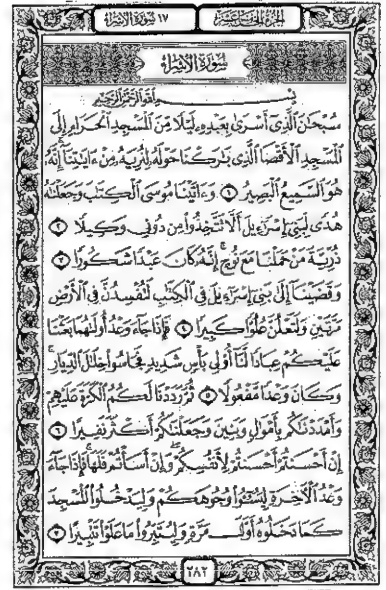 الجزء الخامس عشر
١٧ سورة الإسراء
سورة الإسراء
بسم الله الرحمن الرحيم
سُبْحَٰنَ ٱلَّذِىٓ أَسْرَىٰ بِعَبْدِهِۦ لَيْلًا مِّنَ ٱلْمَسْجِدِ ٱلْحَرَامِ إِلَى
ٱلْمَسْجِدِ ٱلْأَقْصَا ٱلَّذِى بَٰرَكْنَا حَوْلَهُۥ لِنُرِيَهُۥ مِنْ ءَايَٰتِنَآ إِنَّهُۥ
هُوَ ٱلسَّمِيعُ ٱلْبَصِيرُ ١ وَءَاتَيْنَا مُوسَى ٱلْكِتَٰبَ وَجَعَلْنَٰهُ
هُدًى لِّبَنِىٓ إِسْرَٰٓءِيلَ أَلَّا تَتَّخِذُوا۟ مِن دُونِى وَكِيلًا ٢
ذُرِّيَّةَ مَنْ حَمَلْنَا مَعَ نُوحٍ إِنَّهُۥ كَانَ عَبْدًا شَكُورًا ٣
وَقَضَيْنَآ إِلَىٰ بَنِىٓ إِسْرَٰٓءِيلَ فِى ٱلْكِتَٰبِ لَتُفْسِدُنَّ فِى ٱلْأَرْضِ
مَرَّتَيْنِ وَلَتَعْلُنَّ عُلُوًّا كَبِيرًا ٤ فَإِذَا جَآءَ وَعْدُ أُولَىٰهُمَا بَعَثْنَا
عَلَيْكُمْ عِبَادًا لَّنَآ أُو۟لِى بَأْسٍ شَدِيدٍ فَجَاسُوا۟ خِلَٰلَ ٱلدِّيَارِ
وَكَانَ وَعْدًا مَّفْعُولًا ٥ ثُمَّ رَدَدْنَا لَكُمُ ٱلْكَرَّةَ عَلَيْهِمْ
وَأَمْدَدْنَٰكُم بِأَمْوَٰلٍ وَبَنِينَ وَجَعَلْنَٰكُمْ أَكْثَرَ نَفِيرًا ٦
إِنْ أَحْسَنتُمْ أَحْسَنتُمْ لِأَنفُسِكُمْ وَإِنْ أَسَأْتُمْ فَلَهَا فَإِذَا جَآءَ
وَعْدُ ٱلْءَاخِرَةِ لِيَسُۥٓـُٔوا۟ وُجُوهَكُمْ وَلِيَدْخُلُوا۟ ٱلْمَسْجِدَ
كَمَا دَخَلُوهُ أَوَّلَ مَرَّةٍ وَلِيُتَبِّرُوا۟ مَا عَلَوْا۟ تَتْبِيرًا ٧
٢٨٢